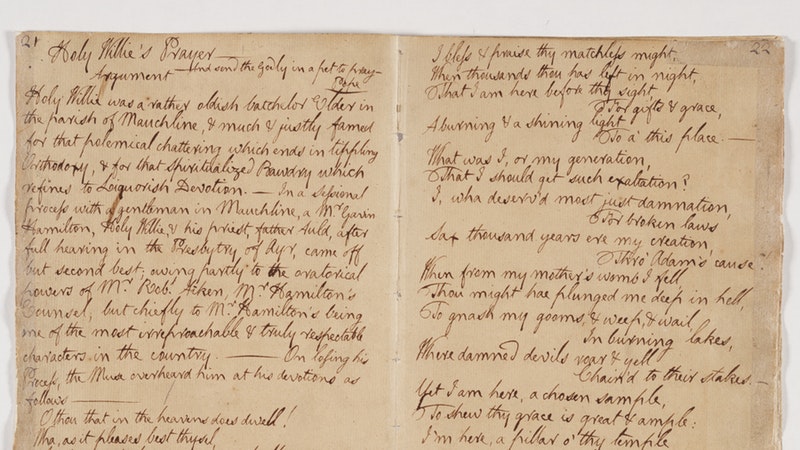 21
Holy Willie's Prayer —
Argument — And send the Godly in a pet to pray —
Pope
Holy Willie was a rather oldish batchelor Elder in
the parish of Mauchline, & much & justly famed
for that polemical chattering which ends in tippling
Orthodoxy, & for that Spiritualized Bawdry which
refines to Liquorish Devotion. — In a sessional
process with a gentleman in Mauchline, a Mr Gavin
Hamilton, Holy Willie, & his priest, father Auld, after
full hearing in the Presbytry of Ayr, came off
but second best; owing partly to the oratorical
powers of Mr Robt Aiken, Mr Hamilton's
Counsel; but chiefly to Mr Hamilton's being
one of the most irreproachable & truly respectable
characters in the country. — On losing his
Process, the Muse overheard him at his devotions as
follows —
O thou that in the heavens does dwell!
Wha, as it pleases best thysel,
22
I bless & praise thy matchless might,
When thousands thou has left in night,
That I am here before thy sight
For gifts & grace,
A burning & a shining light
To a' this place. —
What was I, or my generation,
That I should get such exaltation?
I, wha deserv'd most just damnation,
For broken laws
Sax thousand years ere my creation,
Thro' Adam's cause!
When from my mother's womb I fell,
Thou might hae plunged me deep in hell,
To gnash my gooms, & weep, & wail,
In burning lakes,
Where damned devils roar & yell
Chain'd to their stakes. —
Yet I am here, a chosen sample,
To shew thy grace is great & ample:
I'm here, a pillar o' thy temple